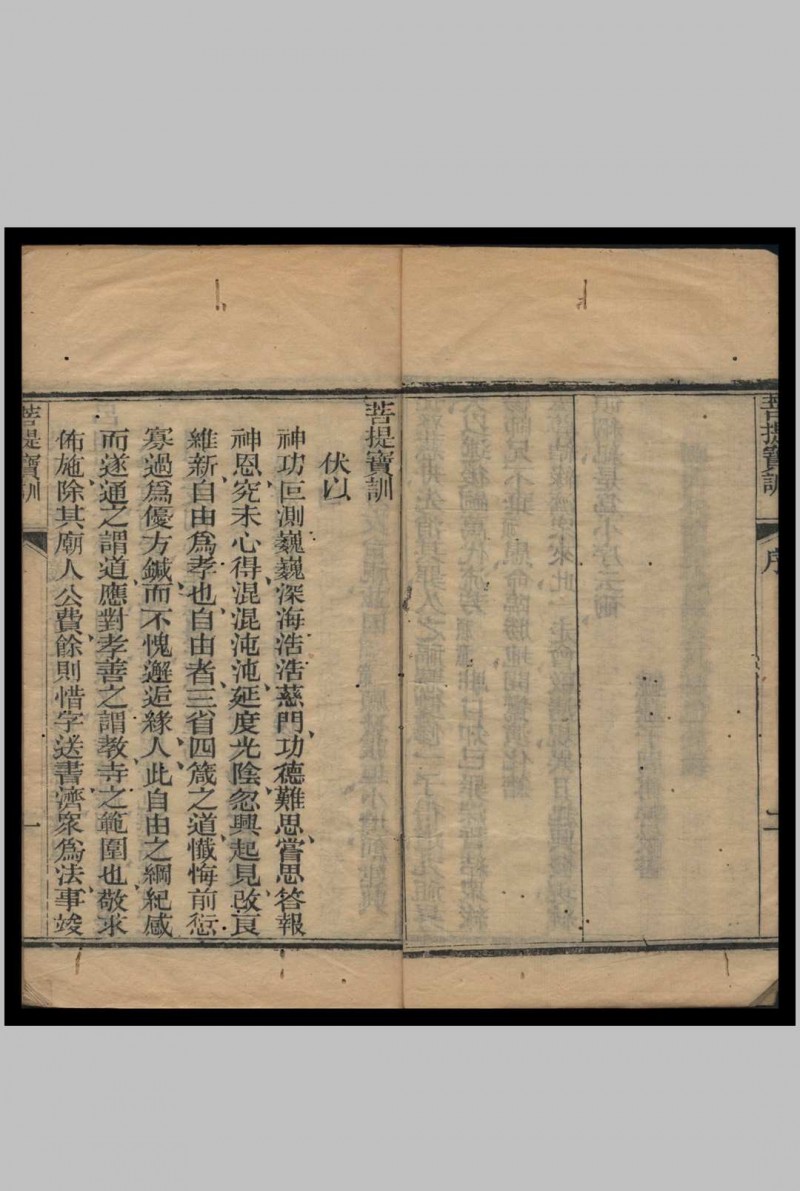 菩提寶訓
序
二
菩提寶訓
伏以
神功叵測巍巍深海浩浩慈門功德難思嘗思答報
神恩究未心得混混沌沌延度光陰忽興起見改良
維新自由爲孝也自由者三省四箴之道懺悔前愆
寡過爲優方鍼而不愧邂逅緣人此自由之綱紀感
而遂通之謂道應對孝善之謂教寺之範圍也敬求
佈施除其廟人公費餘則惜字送書濟眾爲法事竣
菩提寶訓
一